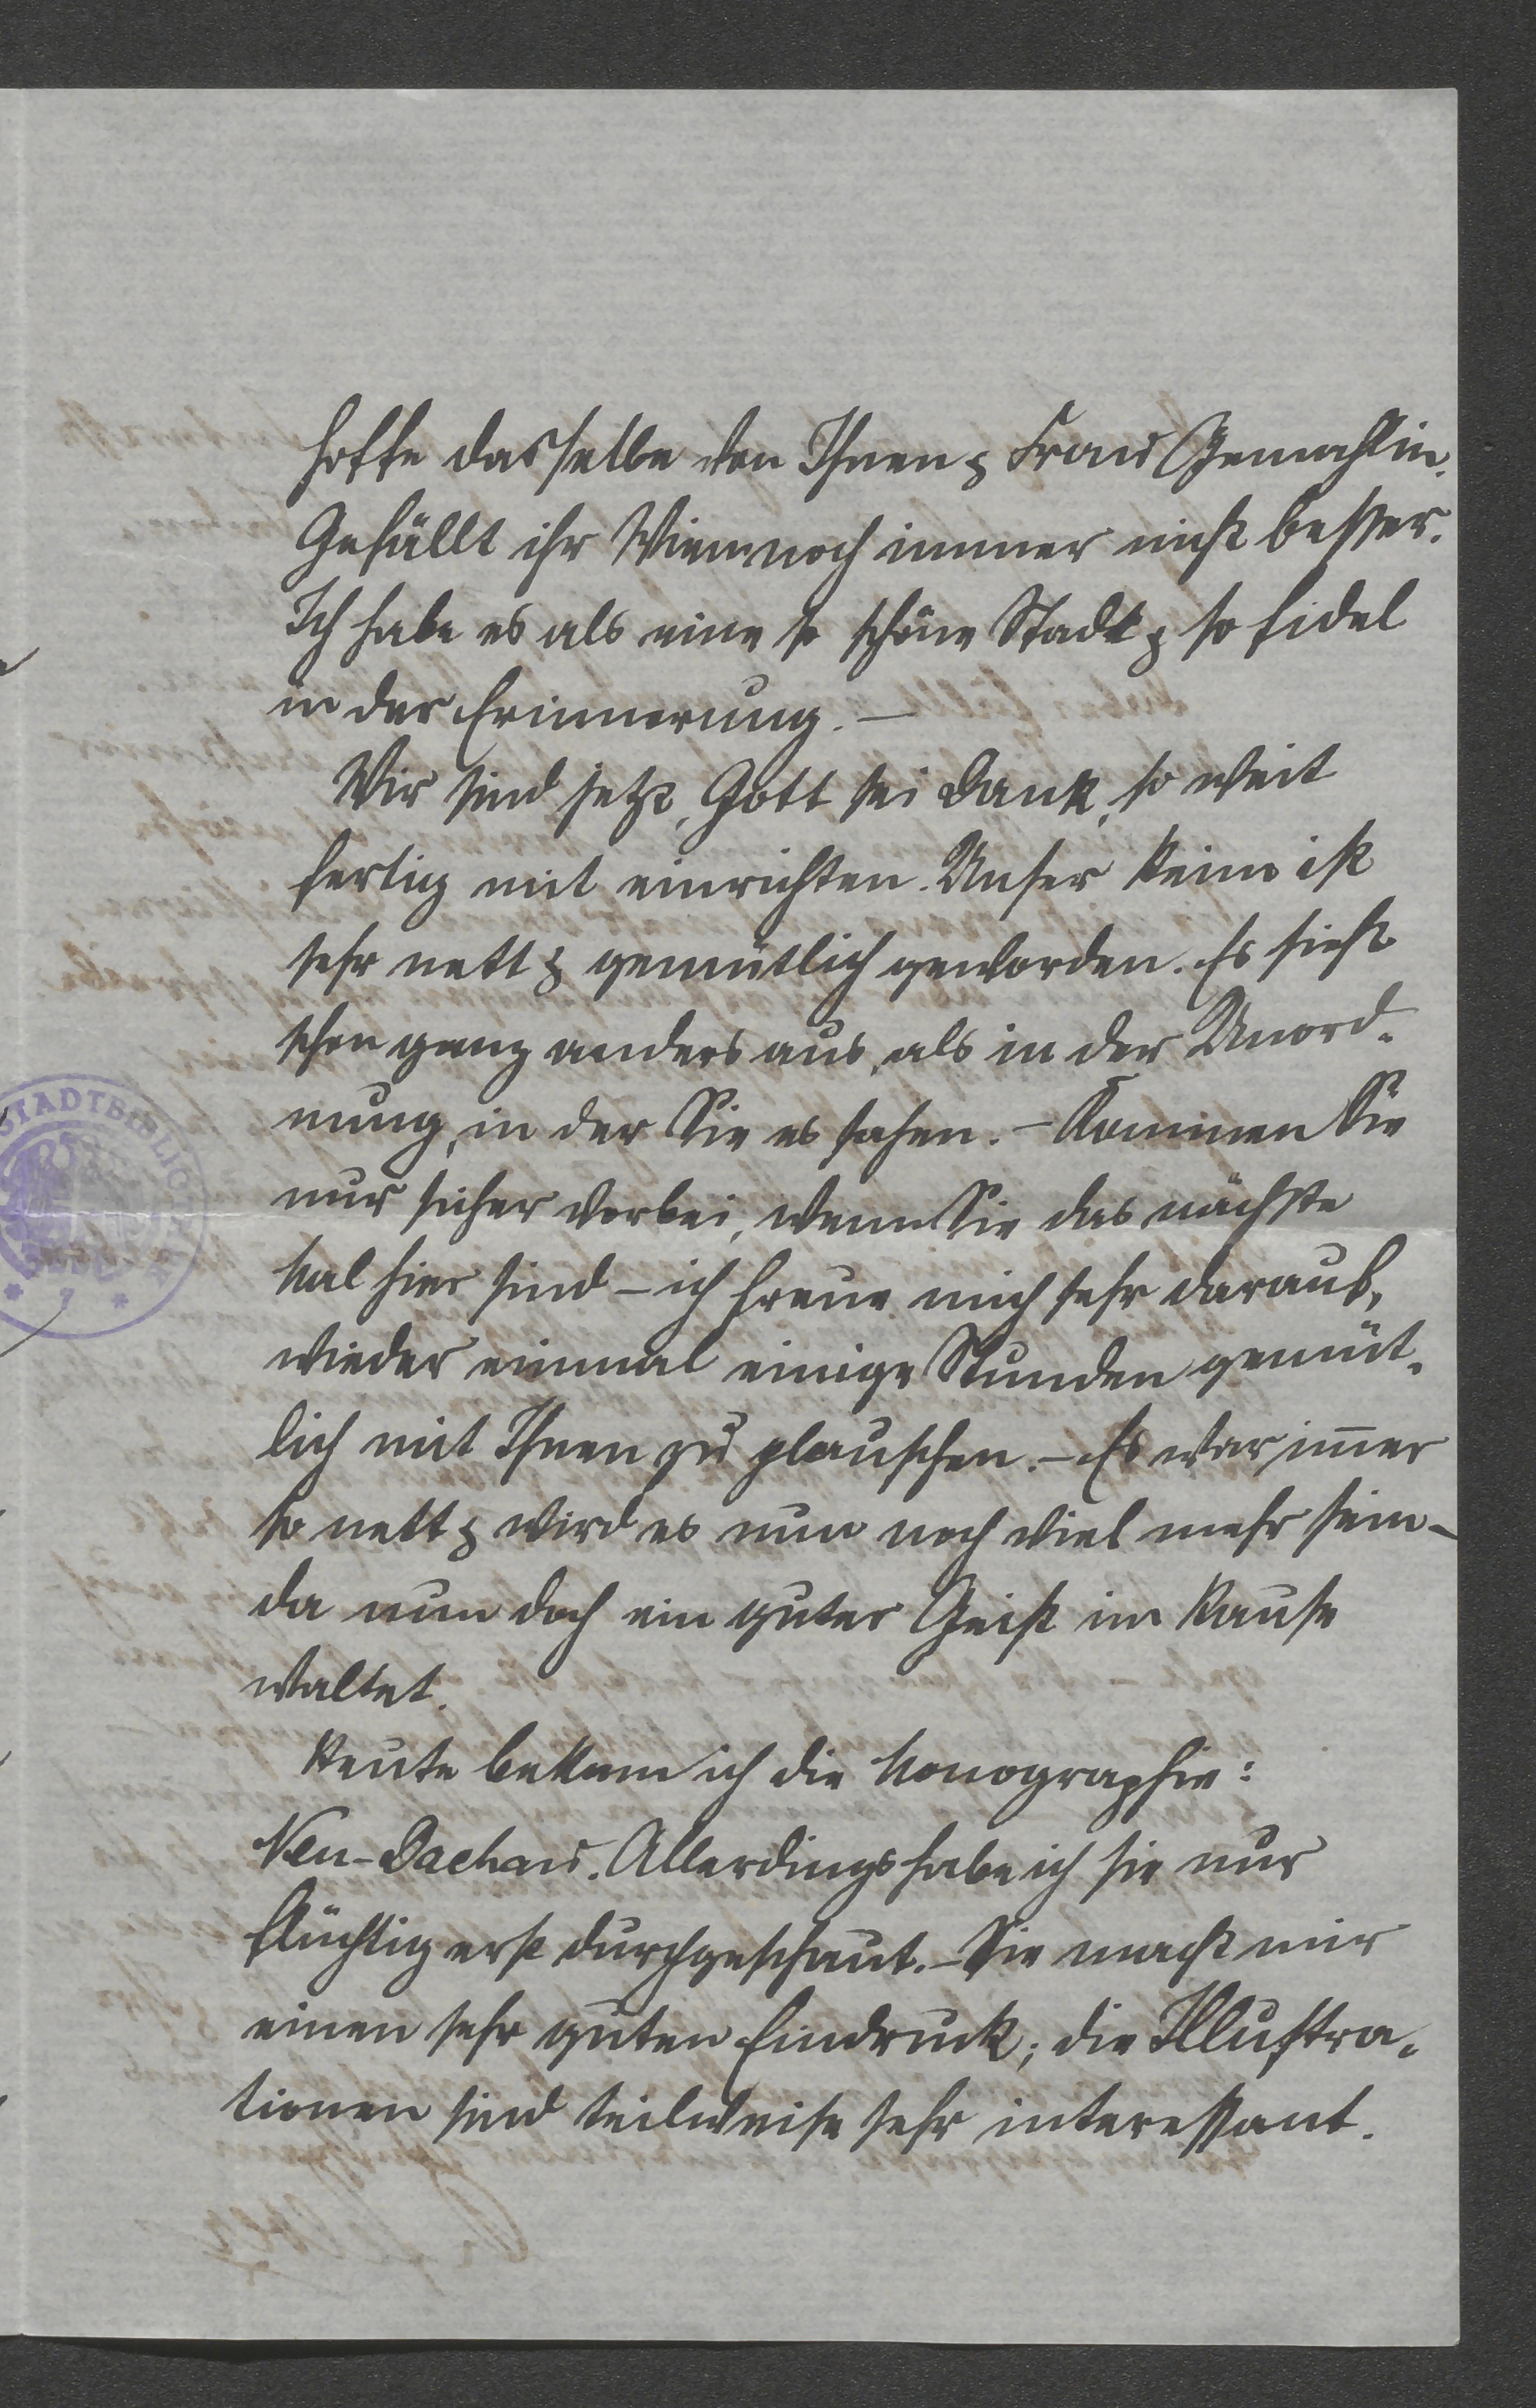 hoffe dasselbe von Ihnen & Frau Gemahlin.
Gefällt ihr Wien noch immer nicht besser.
Ich habe es als eine so schöne Stadt & so fidel
in der Erinnerung. –
Wir sind jetzt, Gott sei Dank, so weit
fertig mit einrichten. Unser Heim ist
sehr nett & gemütlich geworden. Es sieht
schon ganz anders aus, als in der Unord-
nung, in der Sie es sahen. – Kommen Sie
nur sicher vorbei, wenn Sie das nächste
Mal hier sind – ich freue mich sehr darauf,
wieder einmal einige Stunden gemüt-
lich mit Ihnen zu plauschen. – Es war im̅er
so nett & wird es nun noch viel mehr sein –
da nun doch ein guter Geist im Hause
waltet.
Heute bekam ich die Monographie:
Neu-Dachau. Allerdings habe ich sie nur
flüchtig erst durchgeschaut. – Sie macht mir
einen sehr guten Eindruck; die Illustra-
tionen sind teilweise sehr interessant.
STADTBIBLIO